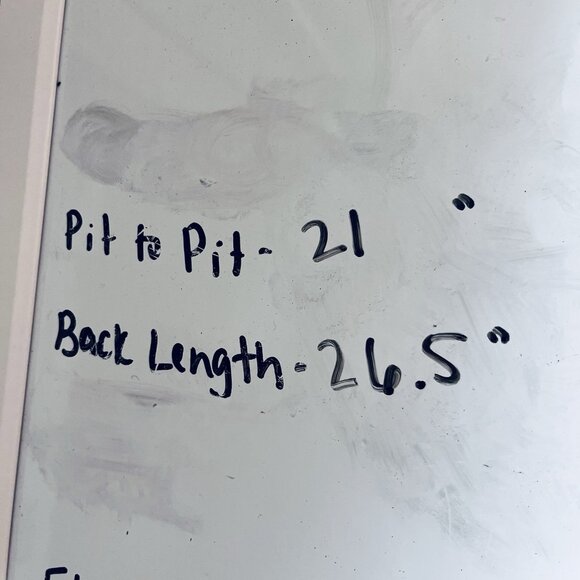 Pit to Pit - 21 "
Back Length - 26.5 "